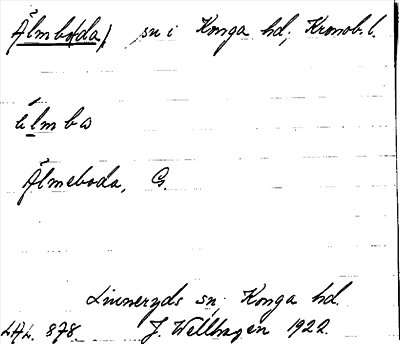 Älmbo(da) sn i Konga hd, Kronob. l.
Älmeboda, G.
Linneryds sn, Konga hd.
LAL. 878. J. Wellhagen 1922.